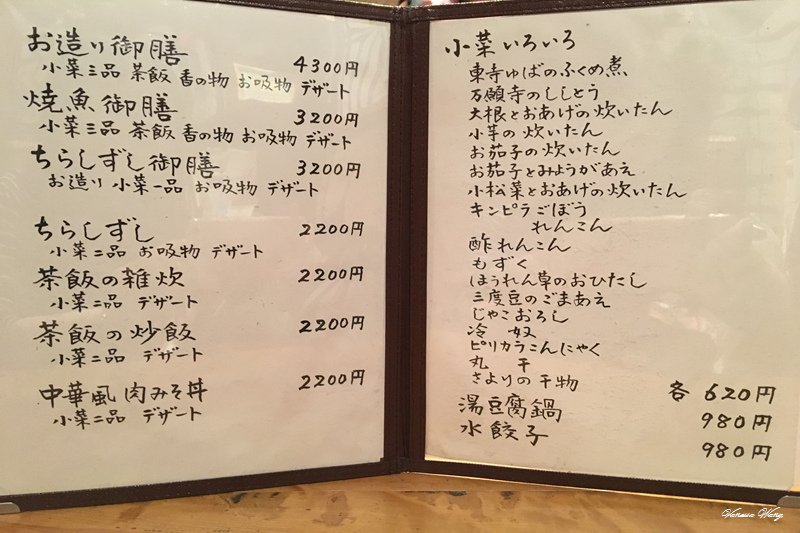 お造り御膳 4300円
小菜三品 茶飯 香の物 お吸物 デザート
焼魚御膳 3200円
小菜三品 茶飯 香の物 お吸物 デザート
ちらしずし御膳 3200円
お造り 小菜一品 お吸物 デザート
ちらしずし 2200円
小菜二品 お吸物 デザート
茶飯の雑炊 2200円
小菜二品 デザート
茶飯の炒飯 2200円
小菜二品 デザート
中華風肉みそ丼 2200円
小菜二品 デザート
小菜いろいろ
東寺ゆばのふくめ煮
万願寺のししとう
大根とおあげの炊いたん
小芋の炊いたん
お茄子の炊いたん
お茄子とみょうがあえ
小松菜とおあげの炊いたん
キンピラごぼう
れんこん
酢れんこん
もずく
ほうれん草のおひたし
三度豆のごまあえ
じゃこおろし
冷奴
ピリカラこんにゃく
丸干
さよりの干物 各620円
湯豆腐鍋 980円
水餃子 980円
Vanessa Wang